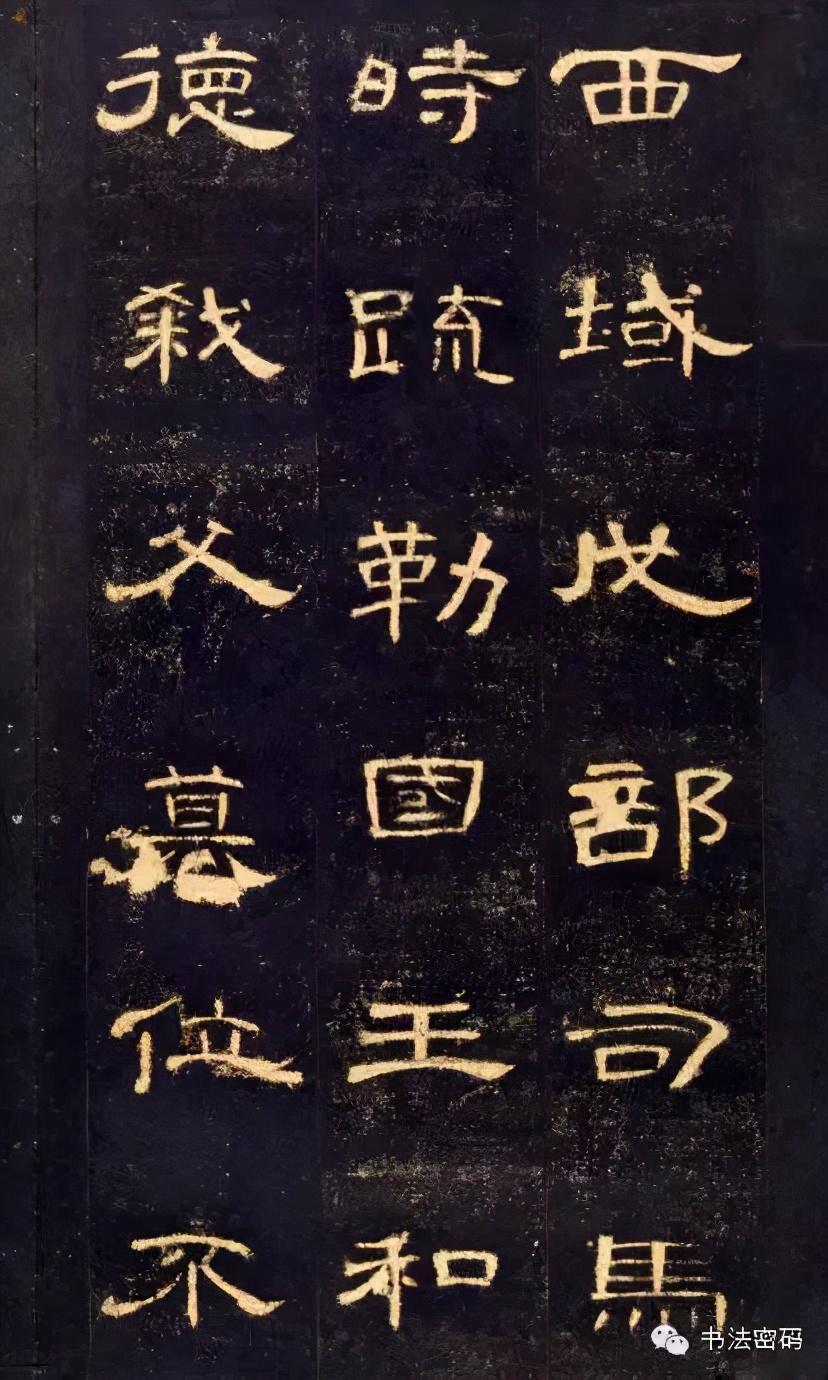 西域戊部司馬
時疏勒國王和
德弒父篡位不
书法密码